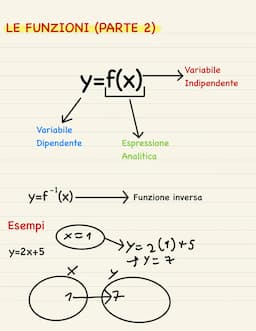 LE FUNZIONI (PARTE 2)
y=f(x)
Variabile
Indipendente
Variabile
Dipendente
Espressione
Analitica
y=f⁻¹(x)
Funzione inversa
Esempi
x=1
y=2x+5
y=2(1)+5
y=7
x
y
1
7